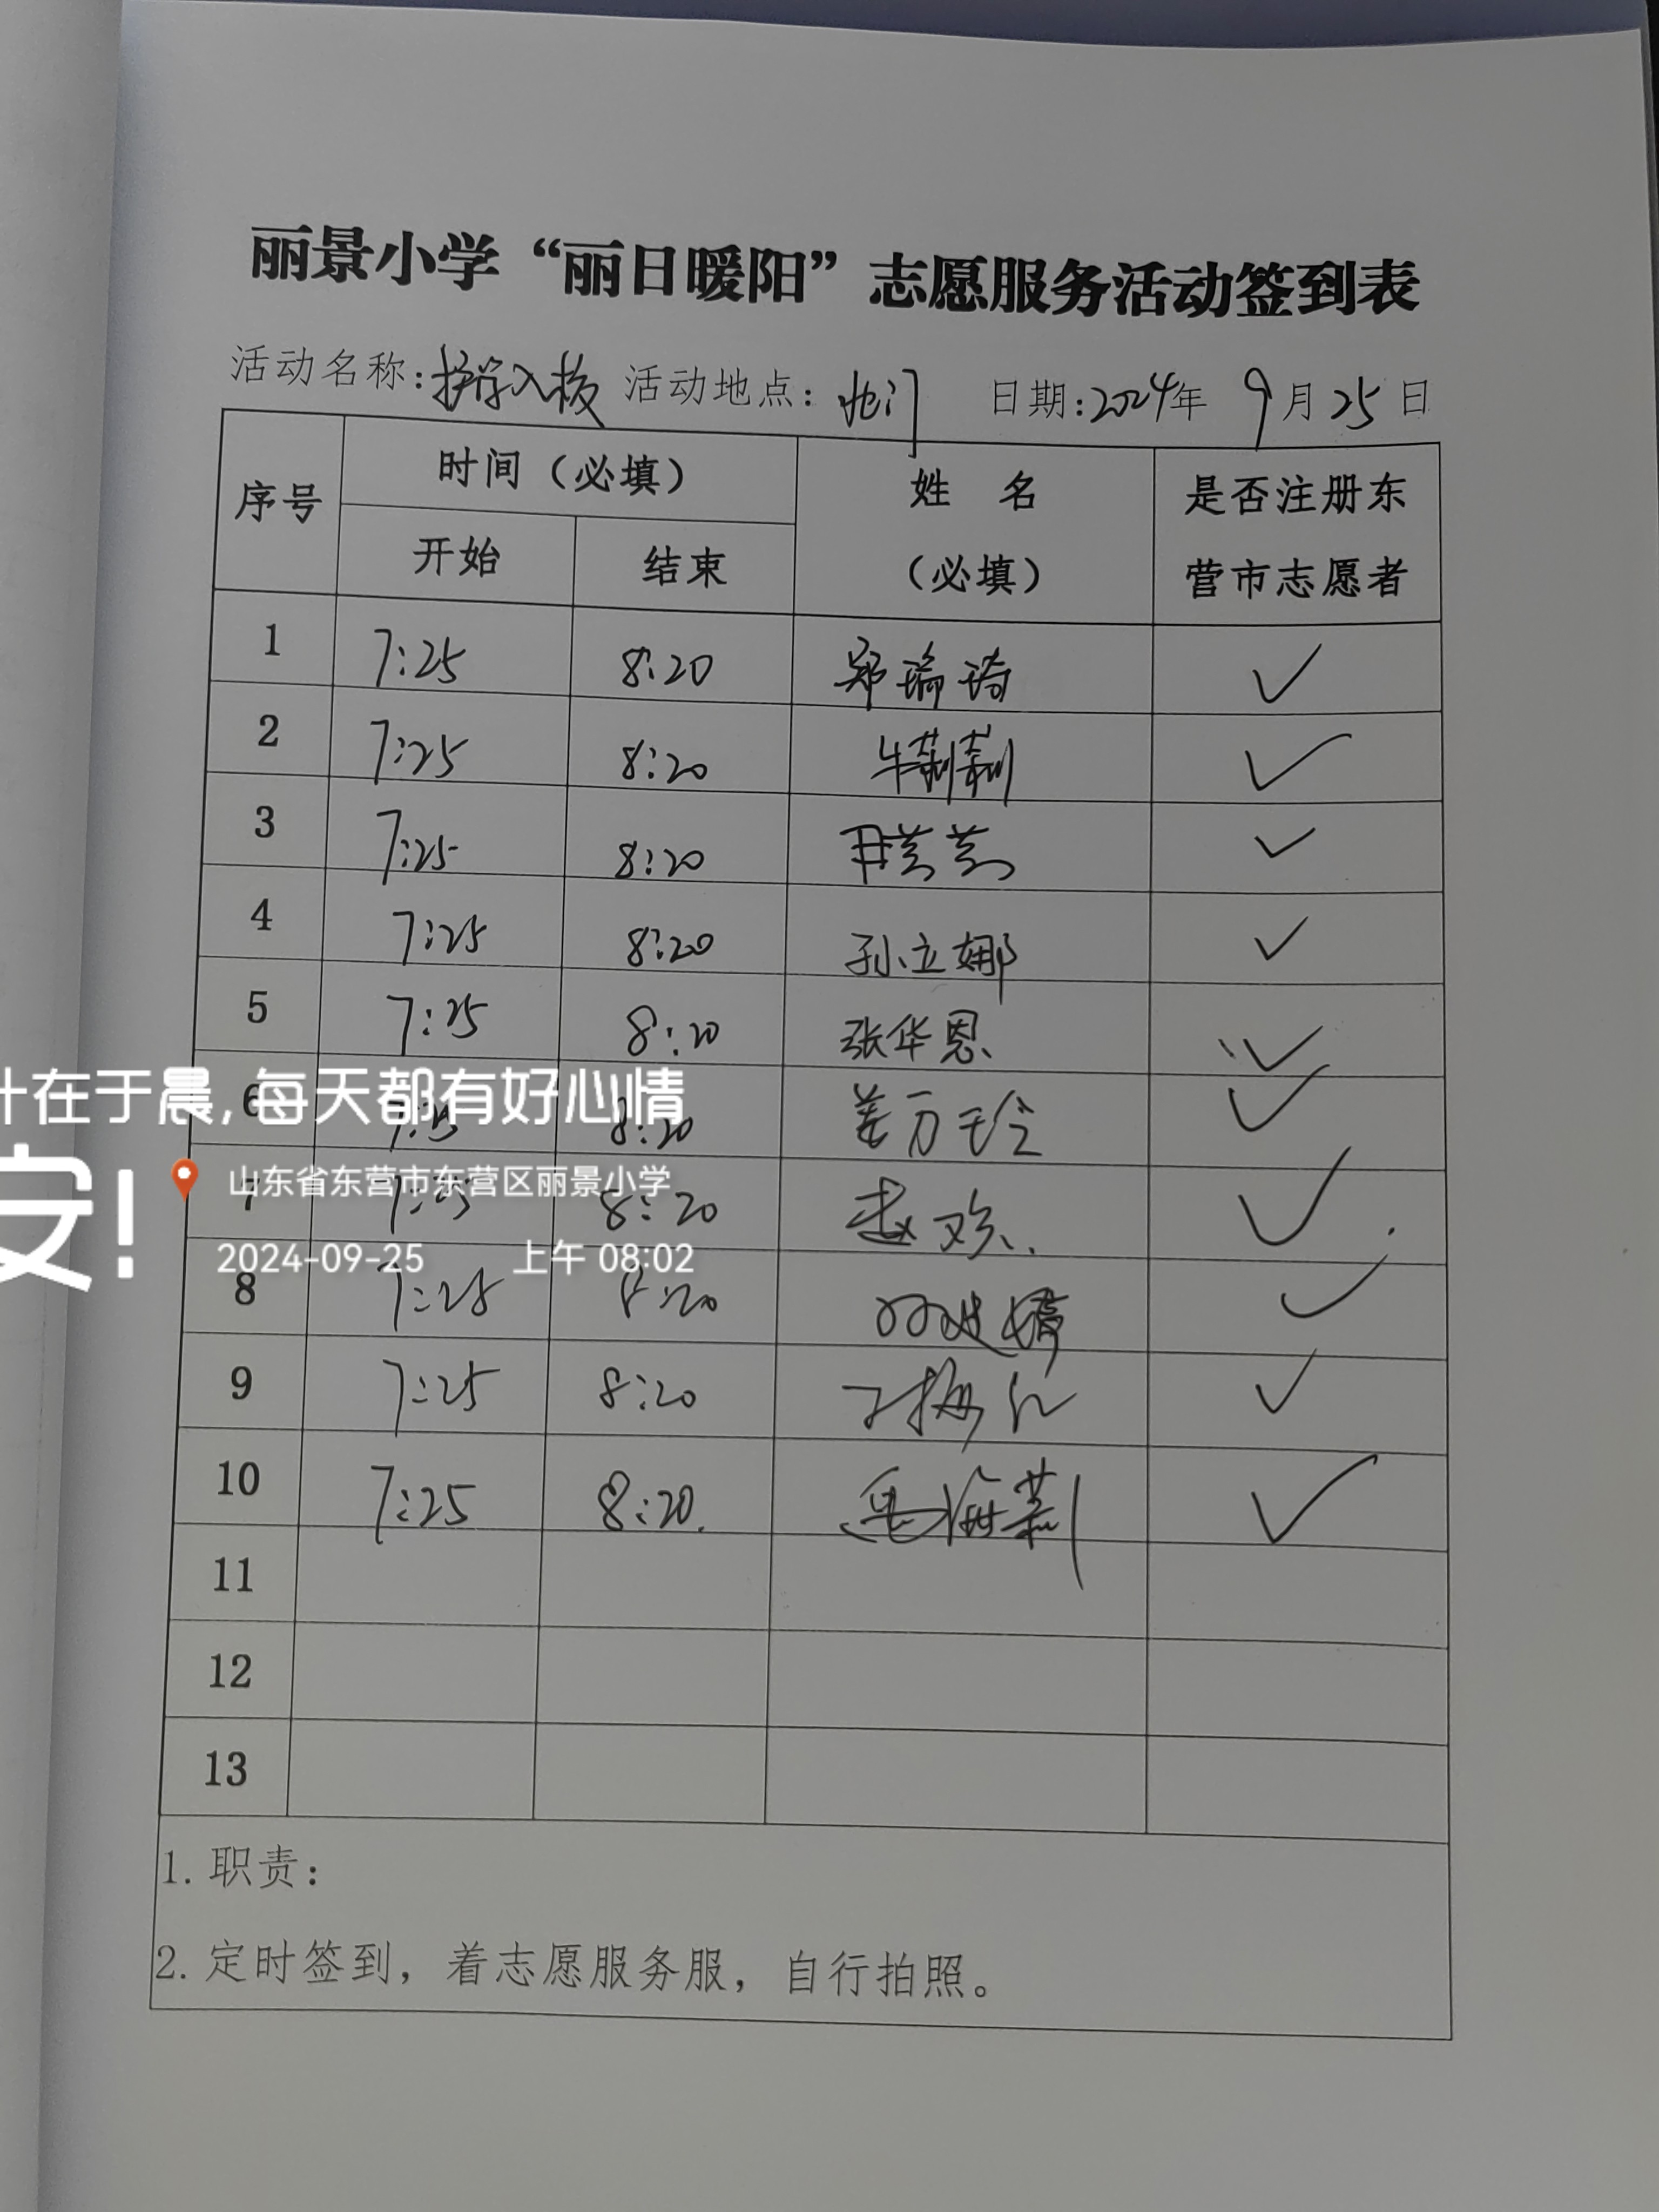 丽景小学“丽日暖阳”志愿服务活动签到表
活动名称:护学入校 活动地点:北门 日期:2024年 9月25日
序号 时间（必填） 姓 名（必填） 是否注册东营市志愿者
开始 结束
1 7:25 8:20 郑瑞琦 ✓
2 7:25 8:20 牛莉莉 ✓
3 7:25 8:20 芸芸 ✓
4 7:25 8:20 孙立娜 ✓
5 7:25 8:20 张华恩 ✓
6 7:25 8:20 姜万玲 ✓
7 7:25 8:20 赵欢 ✓
8 7:25 8:20 ✓
9 7:25 8:20 丁梅红 ✓
10 7:25 8:20 海莉 ✓
11
12
13
1.职责：
2.定时签到，着志愿服务服，自行拍照。
计在于晨,每天都有好心情
安!
山东省东营市东营区丽景小学
2024-09-25 上午 08:02